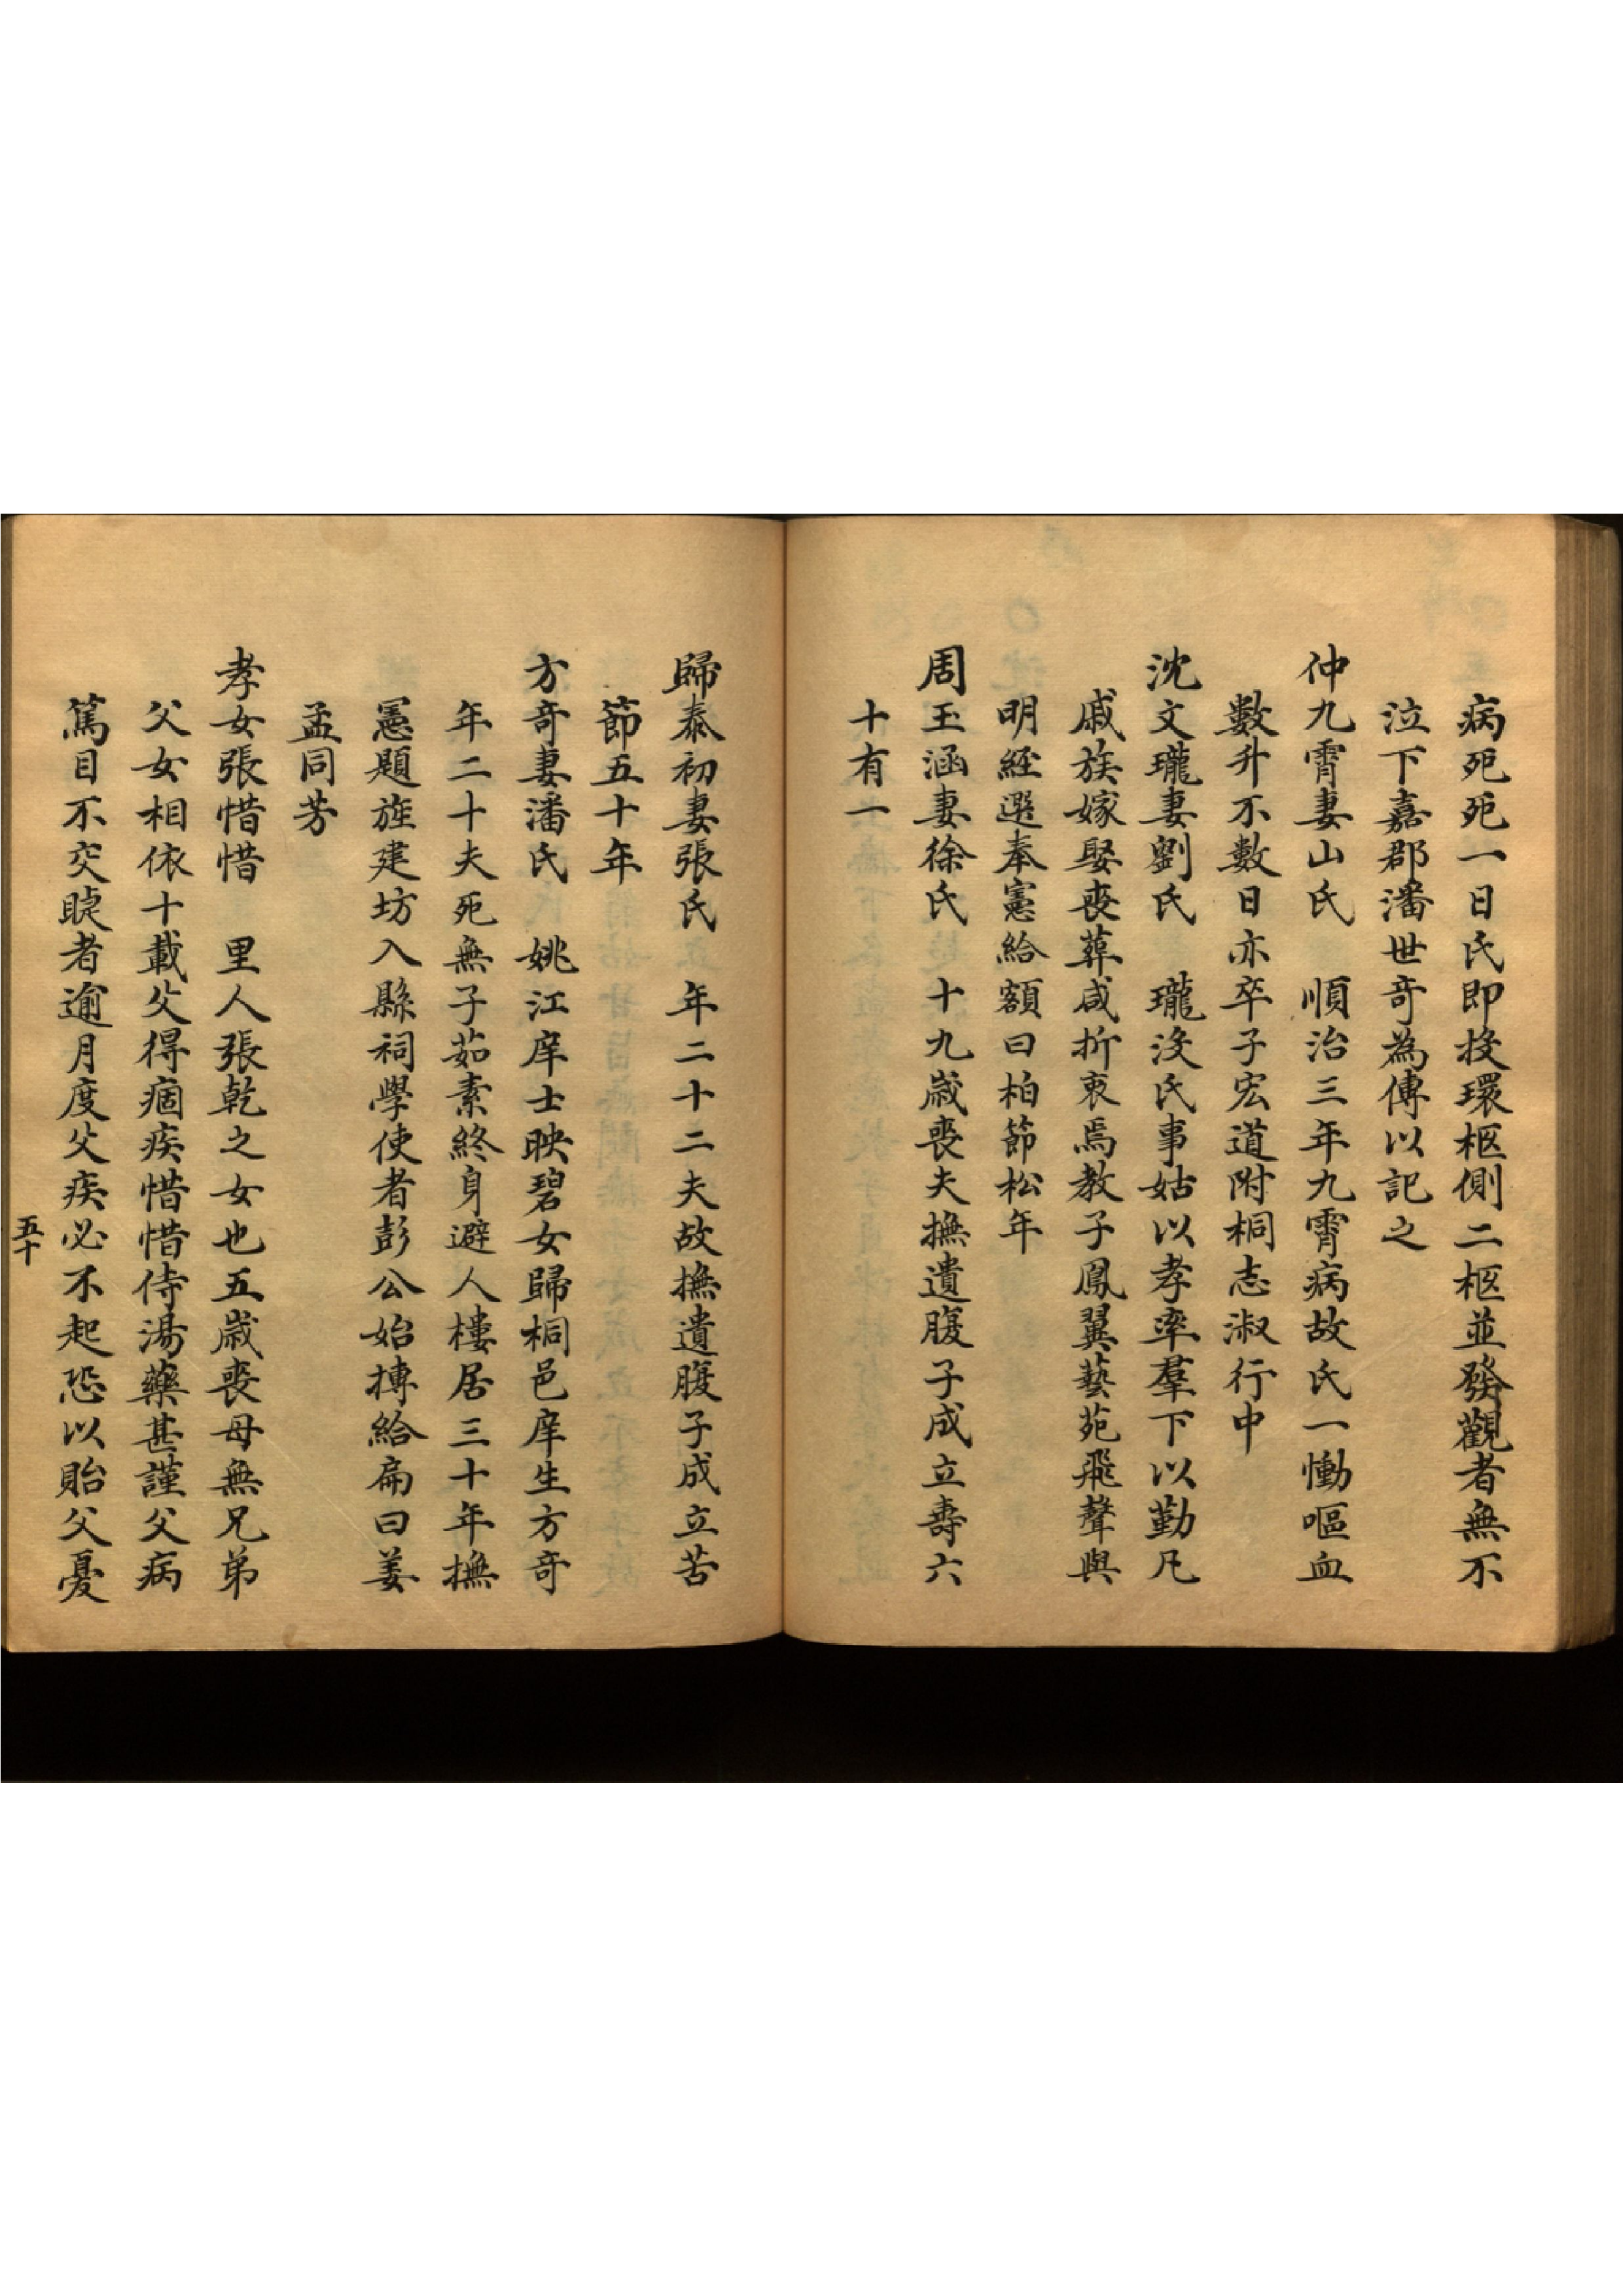 病死死一日氏即投環柩側二柩並發觀者無不
泣下嘉郡潘世奇為傳以記之
仲九霄妻山氏　順治三年九霄病故氏一慟嘔血
數升不數日亦卒子宏道附桐志淑行中
沈文瓏妻劉氏　瓏沒氏事姑以孝率羣下以勤凡
戚族嫁娶喪葬咸折衷焉教子鳳翼藝苑飛聲與
明經選奉憲給額曰柏節松年
周玉涵妻徐氏　十九歲喪夫撫遺腹子成立壽六
十有一
歸泰初妻張氏　年二十二夫故撫遺腹子成立苦
節五十年
方奇妻潘氏　姚江庠士映碧女歸桐邑庠生方奇
年二十夫死無子茹素終身避人樓居三十年撫
憲題旌建坊入縣祠學使者彭公始摶給扁曰姜
孟同芳
孝女張惜惜　里人張乾之女也五歲喪母無兄弟
父女相依十載父得痼疾惜惜侍湯藥甚謹父病
篤目不交睫者逾月度父疾必不起恐以貽父憂
五十